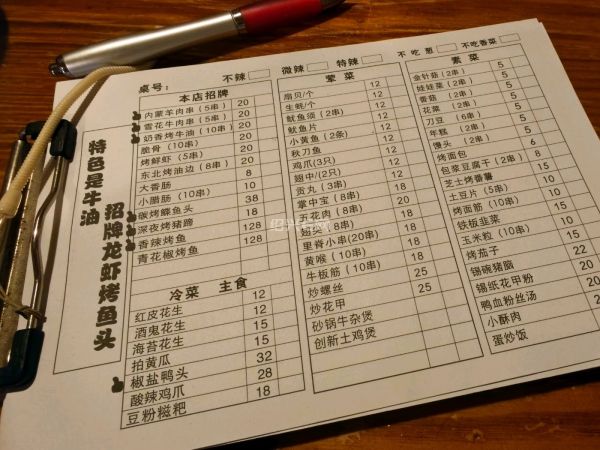 桌号：
不辣 微辣 特辣 不吃葱 不吃香菜
特色是牛油
招牌龙虾烤鱼头
本店招牌
内蒙羊肉串（5串） 20
雪花牛肉串（5串） 20
奶香烤牛油（10串） 20
脆骨（10串） 20
烤鲜虾（5串） 20
东北烤油边（8串） 20
大香肠 8
小腊肠（10串） 10
碳烤鲽鱼头 38
深夜烤猪蹄 18
香辣烤鱼 128
青花椒烤鱼 128
冷菜 主食
红皮花生 12
酒鬼花生 12
海苔花生 15
拍黄瓜 15
椒盐鸭头 32
酸辣鸡爪 28
豆粉糍粑 18
荤菜
扇贝/个 12
生蚝/个 12
鱿鱼须（2串） 12
鱿鱼片 12
小黄鱼（2条） 12
秋刀鱼 12
鸡爪(3只) 12
翅中/(2只) 12
贡丸（3串） 12
掌中宝（10串） 18
五花肉（8串） 20
翅尖（8串） 20
里脊小串(20串) 18
黄喉（10串） 18
牛板筋（10串） 18
炒螺丝 25
炒花甲 25
砂锅牛杂煲
创新土鸡煲
素菜
金针菇（2串） 5
娃娃菜（2串） 5
香菇（2串） 5
花菜（2串） 5
刀豆（6串）
年糕（2串）
馒头（2串）
烤面包
包浆豆腐干（2串）
芝士烤番薯
土豆片（5串）
烤面筋（10串）
铁板韭菜
玉米粒（10串）
烤茄子
锡碗猪脑
锡纸花甲粉
鸭血粉丝汤
小酥肉
蛋炒饭